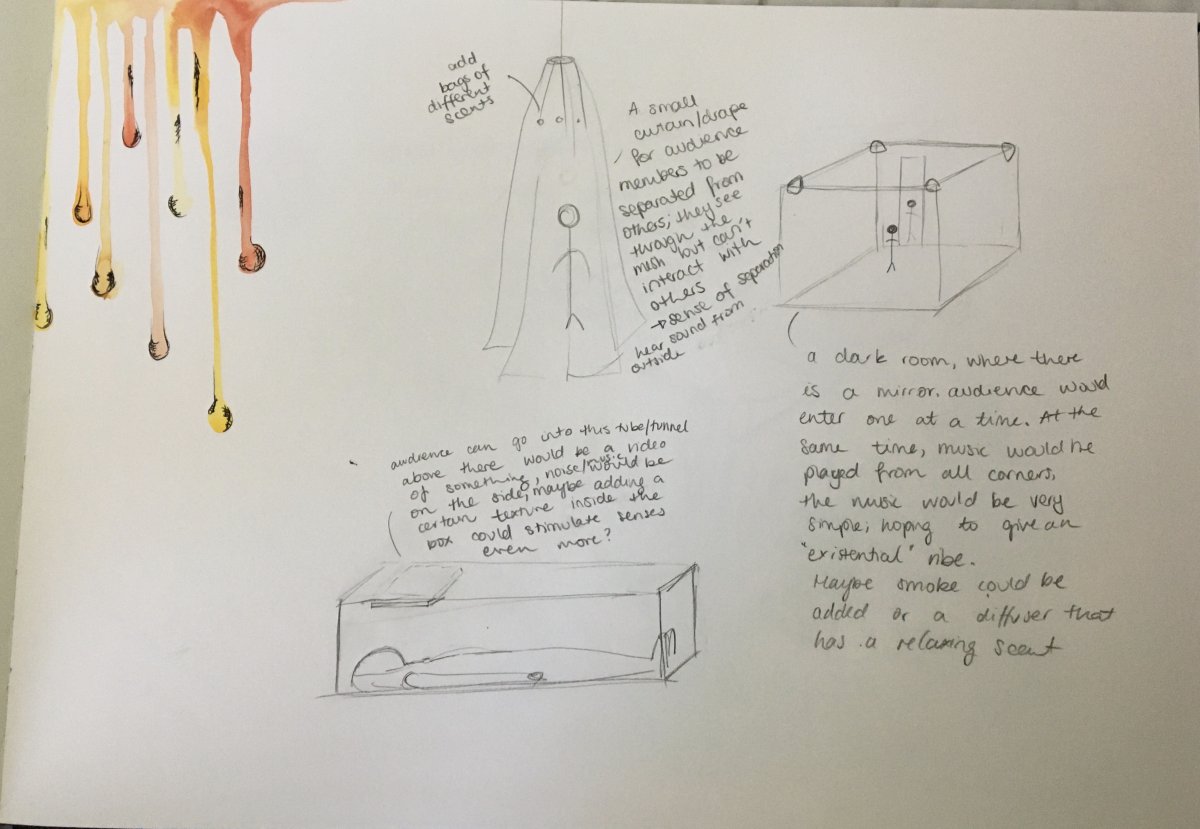 add
bags of
different
scents
A small
curtain/drape
for audience
members to be
separated from
others; they see
through the
mesh but can't
interact with
others
→ sense of separation
hear sound from
outside
a dark room, where there
is a mirror. audience would
enter one at a time. At the
same time, music would be
played from all corners,
the music would be very
simple; hoping to give an
"existential" vibe.
Maybe smoke could be
added or a diffuser that
has a relaxing scent
audience can go into this tube/tunnel
above there would be a video
of something, noise/music would be
on the side, maybe adding a
certain texture inside the
box could stimulate senses
even more?